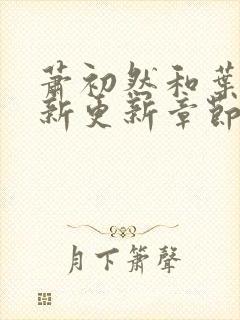 萧初然和葉
新更新章節
月下箫聲